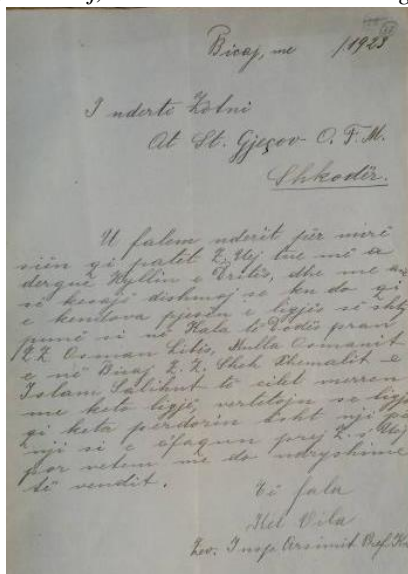 Bicaj, me /1923
I nderti Zotni
At St. Gjeçov O. F. M.
Shkodër.
U falem nderit për mirë
siën qi patët Z. Uej tue më a
dërgue Hyllin e Dritës, dhe me anë
së kësajë dishmoj se ku do qi
e kendova pjesën e ligjës së shty
punë si në Kala të Dodës pran
Z.Z. Osman Litës, Mulla Osmanit
e në Bicaj Z. Z. Sheh Xhemalit e
Islam Salihut të cilët merren
me këto ligjë, vërtetojn se ligja
qi këta përdorin âsht nji për
nji si e çfaqun prej Z. s Uej
por vetëm me do ndryshime
të vendit.
Të fala
Vila
Zev. Insp Arsimit Pref.